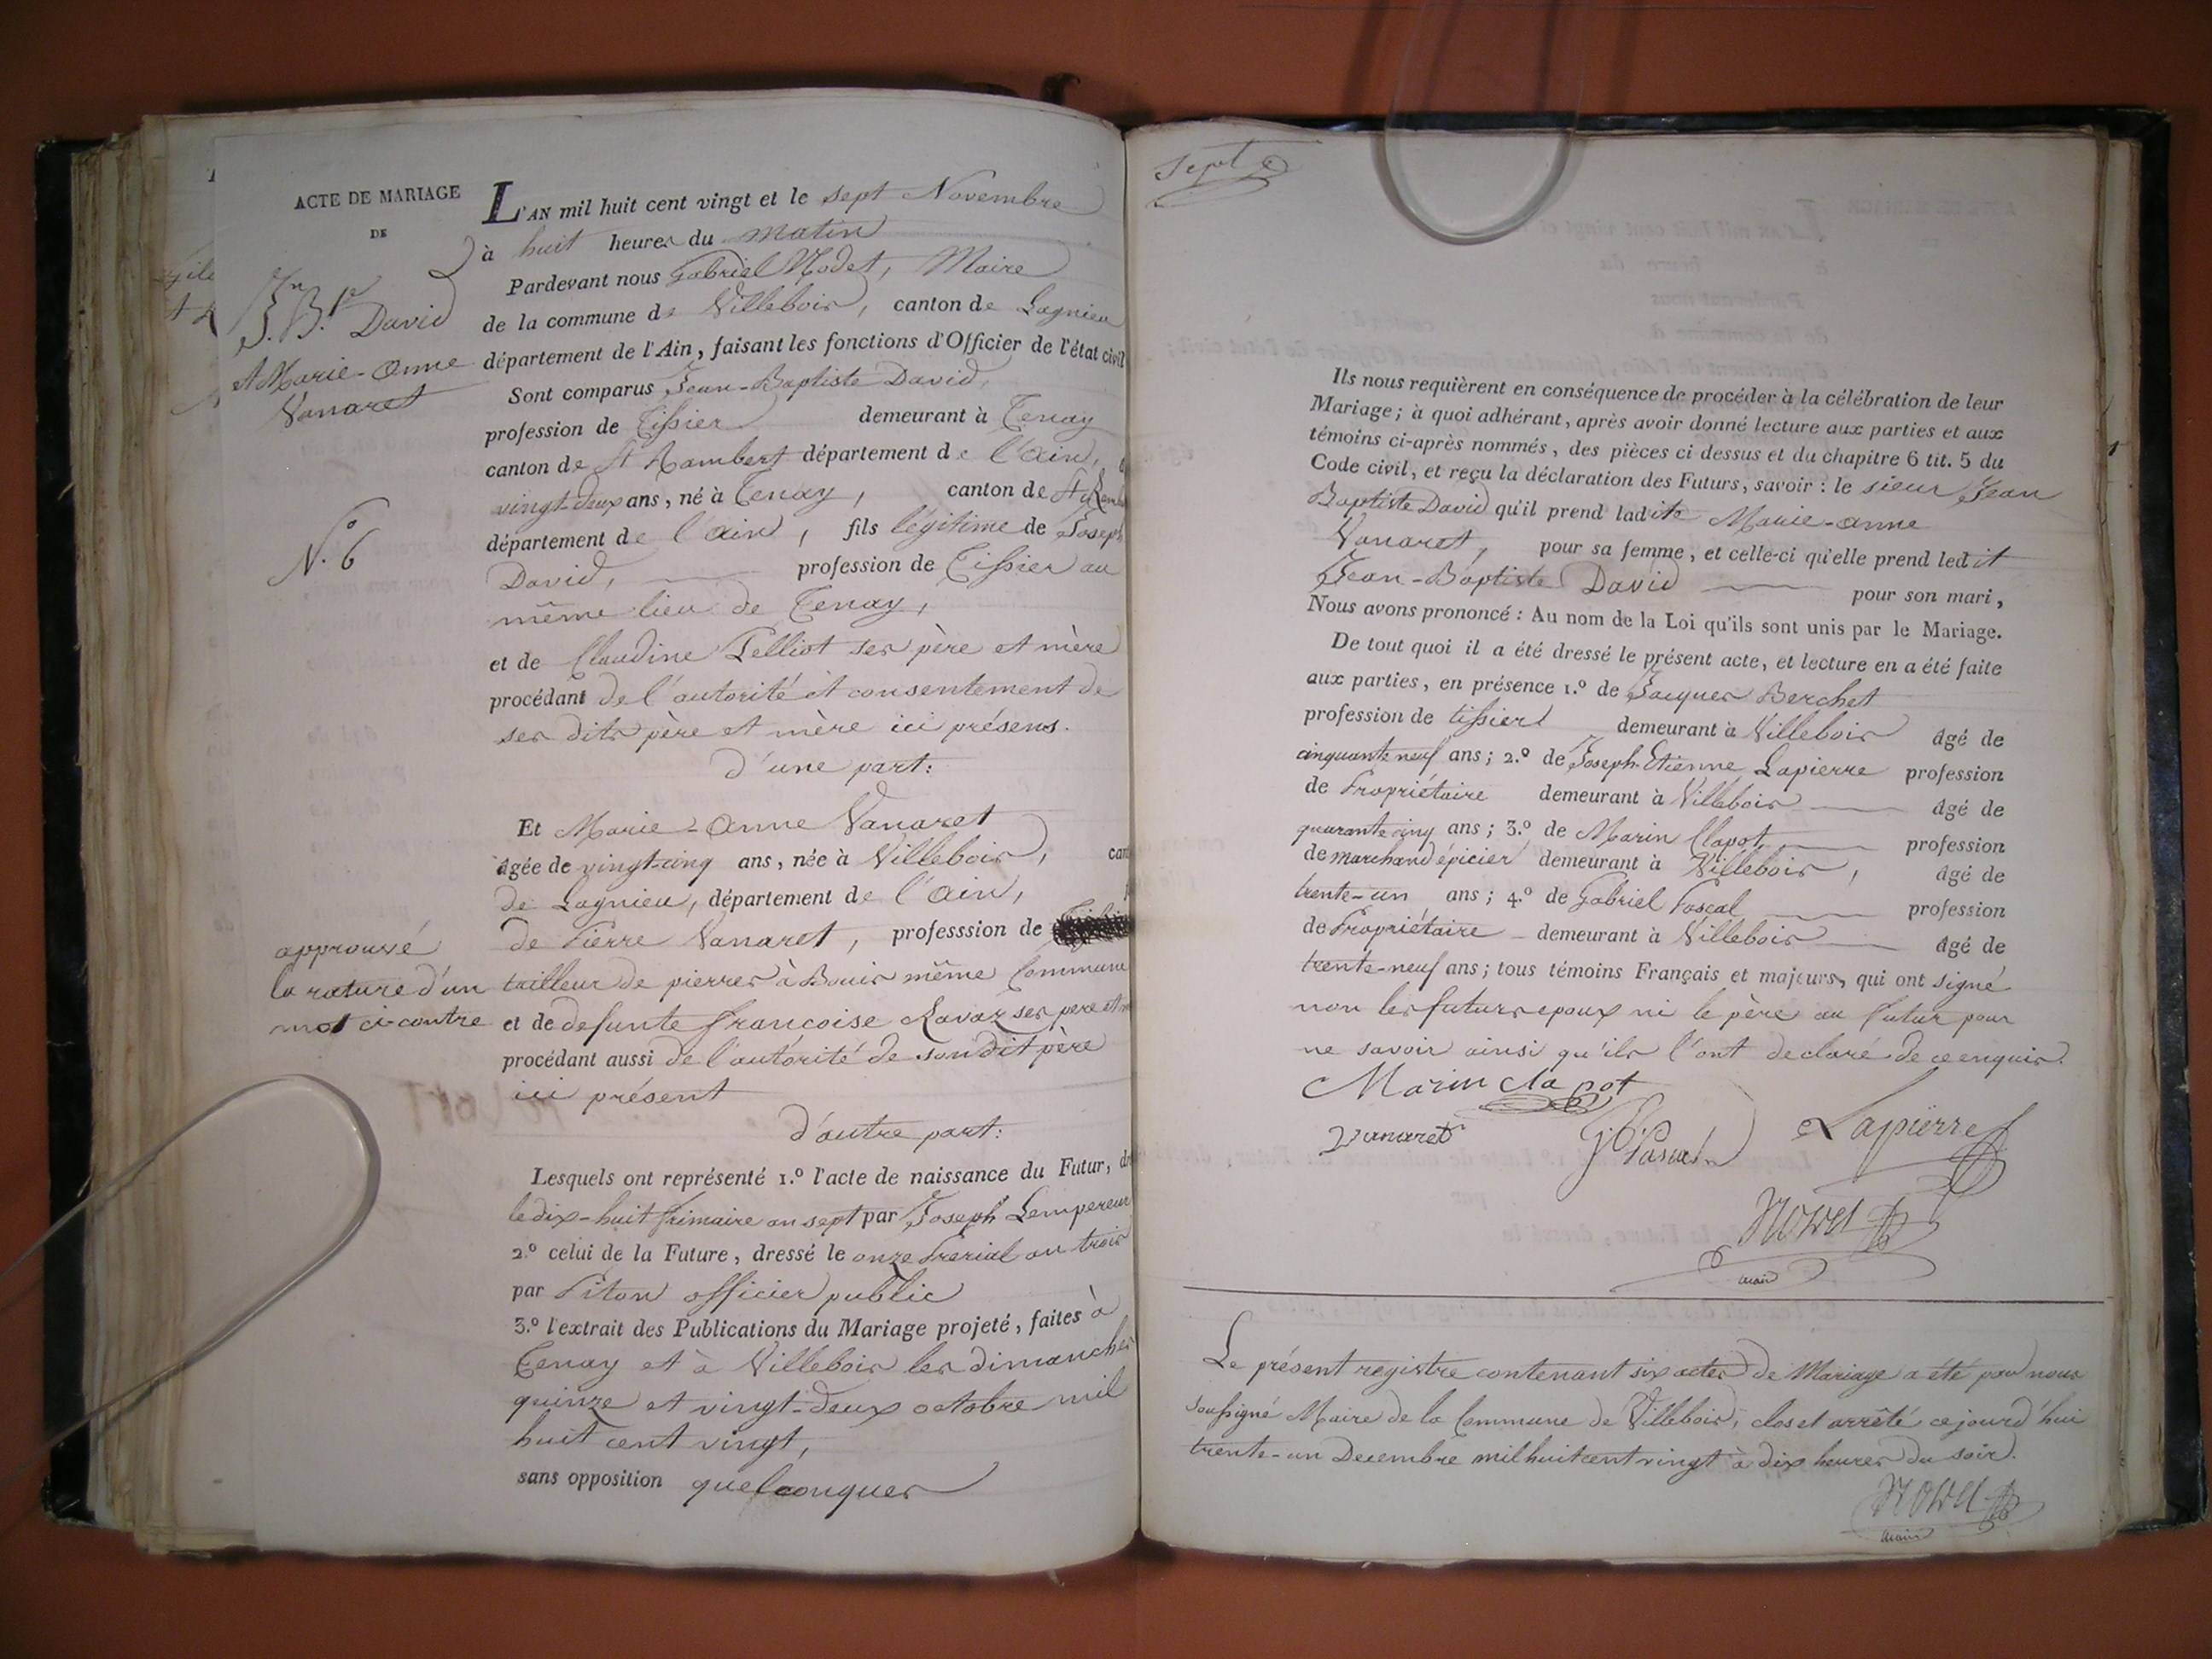 ACTE DE MARIAGE
DE
J.n B.te David
et Marie-Anne
Vanaret
N.o 6
approuvé
la rature d'un
mot ci-contre
L'AN mil huit cent vingt et le sept Novembre
à huit heures du matin
Pardevant nous Gabriel Modet, Maire
de la commune de Villebois, canton de Lagnieu
département de l'Ain, faisant les fonctions d'Officier de l'état civil
Sont comparus Jean-Baptiste David,
profession de Tissier demeurant à Tenay
canton de St Rambert département de l'ain,
vingt-deux ans, né à Tenay, canton de St Ramb
département de l'ain, fils légitime de Joseph
David, profession de Tissier au
même lieu de Tenay,
et de Claudine Pelliot ses père et mère
procédant de l'autorité et consentement de
ses dits père et mère ici présens.
d'une part:
Et Marie-Anne Vanaret
âgée de vingt-cinq ans, née à Villebois, can
de Lagnieu, département de l'ain,
de Pierre Vanaret, professsion de
tailleur de pierres à Bouis même Commune
et de defunte francoise Ravaz ses pere et
procédant aussi de l'autorité de son dit père
ici présent
d'autre part:
Lesquels ont représenté 1.o l'acte de naissance du Futur, dr
le dix-huit frimaire an sept par Joseph Lempereur
2.o celui de la Future, dressé le onze Prerial an trois
par Piton officier public
3.o l'extrait des Publications du Mariage projeté, faites à
Tenay et à Villebois les dimanches
quinze et vingt-deux octobre mil
huit cent vingt,
sans opposition quelconques
Sept
Ils nous requièrent en conséquence de procéder à la célébration de leur
Mariage; à quoi adhérant, après avoir donné lecture aux parties et aux
témoins ci-après nommés, des pièces ci dessus et du chapitre 6 tit. 5 du
Code civil, et reçu la déclaration des Futurs, savoir : le sieur Jean
Baptiste David qu'il prend ladite Marie-anne
Vanaret, pour sa femme, et celle-ci qu'elle prend ledit
Jean-Baptiste David pour son mari,
Nous avons prononcé : Au nom de la Loi qu'ils sont unis par le Mariage.
De tout quoi il a été dressé le présent acte, et lecture en a été faite
aux parties, en présence 1.o de Jacques Berchet
profession de tissier demeurant à Villebois âgé de
cinquante neuf ans; 2.o de Joseph-Etienne Lapierre profession
de Propriétaire demeurant à Villebois âgé de
quarante cinq ans; 3.o de Marin Clapot profession
de marchand épicier demeurant à Villebois, âgé de
trente-un ans; 4.o de Gabriel Pascal profession
de Propriétaire demeurant à Villebois âgé de
trente-neuf ans; tous témoins Français et majeurs, qui ont signé
non les futurs epoux ni le père au futur pour
ne savoir ainsi qu'ils l'ont declaré de ce enquis.
Marin clapot
Vanaret G. Pascal Lapierre
Modet
maire
Le présent registre contenant six actes de Mariage a été par nous
soussigné Maire de la Commune de Villebois, clos et arrêté ce jourd'hui
trente-un Decembre mil huit cent vingt à dix heures du soir.
Modet
maire